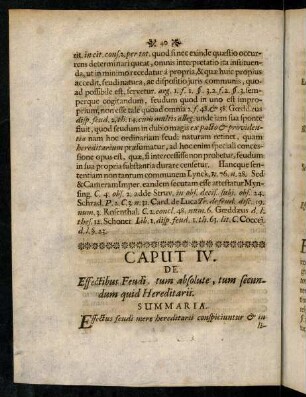 40
rit. in cit. cons. 2. per tot. quod si nec exinde quæstio occur-
rens determinari queat, omnis interpretatio ita instituen-
da, ut in minimo recedatur à propria, & quæ huic propius
accedit, feudi natura, ac dispositio juris communis, quo-
ad possibile est, servetur. arg. l. f. 1. §. 3. 2. f. 2. §. 3. sem-
perque cogitandum, feudum quod in uno est impro-
prium, non esse tale quoad omnia 2. f. 48. & Gedd. rus
disp. feud. 2. th. 14. cum multis alleg. unde jam sua sponte
fluit, quod feudum in dubio magis ex pacto & providentia
nam hoc ordinariam feudi naturam retinet, quam
hereditarium præsumatur, ad hoc enim speciali conces-
sione opus est, quâ, si intercessisse non probetur, feudum
in sua propria substantia durare censetur. Hancque sen-
tentiam non tantum communem Lynck. 2. 76. n. 28. Sed
& Cameram Imper. eandem secutam esse attestatur Myn-
sing. C. 4. obs. 2. adde Stryv. in obs. decis. sub obs. 24.
Schrad. P. 2. C. 2. n. 31. Card. de Luca Tr. de feud. disc. 19.
num. 3. Rosenthal. C. 2. concl. 48. num. 6. Geddæus d. l.
thes. 12. Schonet. Lib. 1. disp. feud. 2. th. 63. lit. C. Coccei.
d. l. §. 23.
CAPUT IV.
DE
Effectibus Feudi, tum absolute, tum secun-
dum quid Hereditarii.
SUMMARIA.
Effectus feudi mere hereditarii conspiciuntur & in